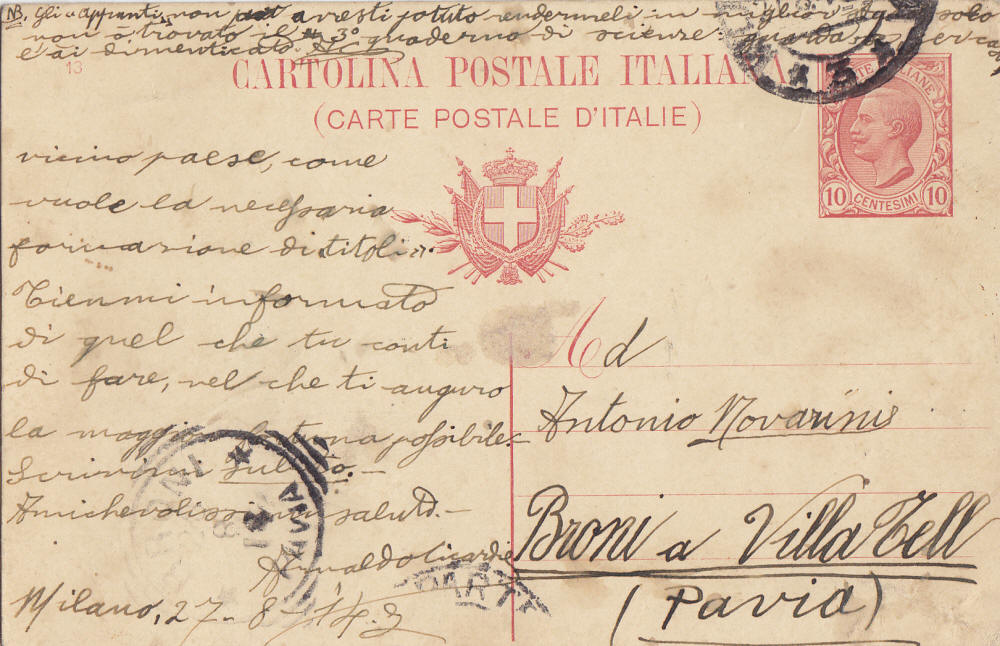 NB. gli appunti non avresti potuto rendermeli in miglior solo
non o trovato il 3° quaderno di scienze, guarda
e ai dimenticato. AC
13
CARTOLINA POSTALE ITALIANA
(CARTE POSTALE D'ITALIE)
10 CENTESIMI 10
vicino paese, come
vuole la necessaria
formazione di titoli.
Tienmi informato
di quel che tu conti
di fare, nel che ti auguro
la maggior fortuna possibile.-
Scrivimi subito.-
Amichevolissimi saluti.-
Arnaldo
Milano, 27-8-
Ad
Antonio Novarinis
Broni a Villa Tell
(Pavia)
BRONI
PAVIA
PARTE